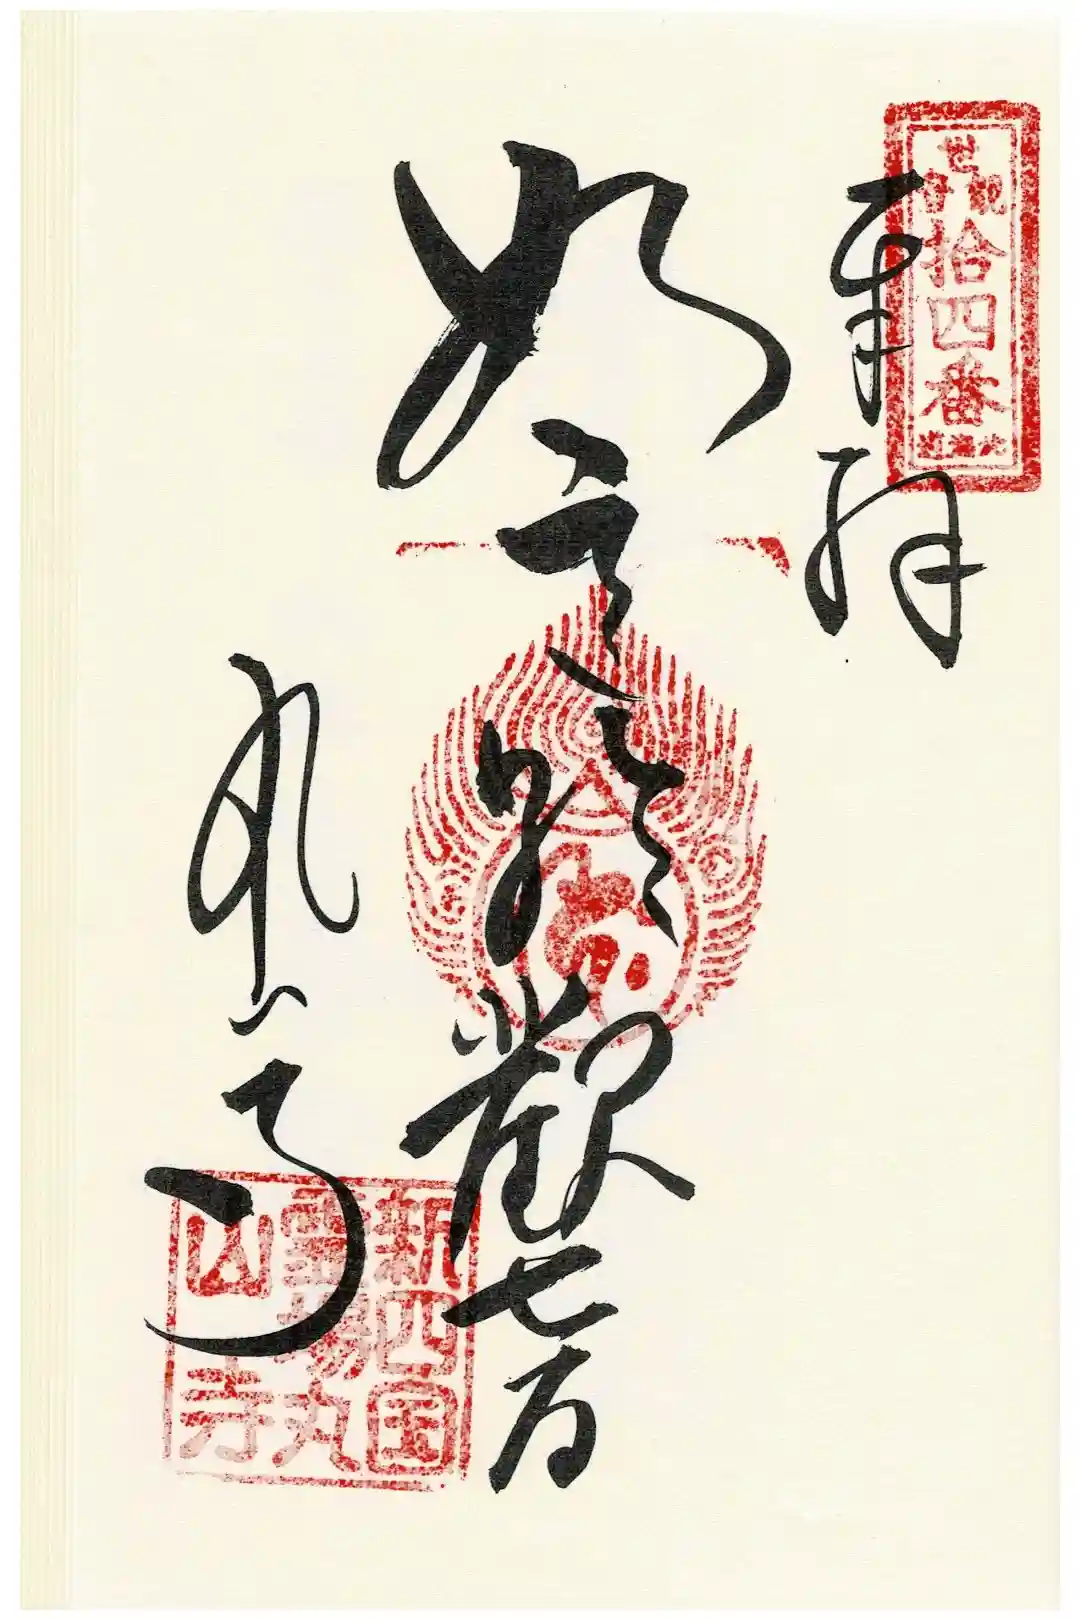 奉拝
拾四番
如意輪観世音
丸山寺
新四国
霊場丸
山寺